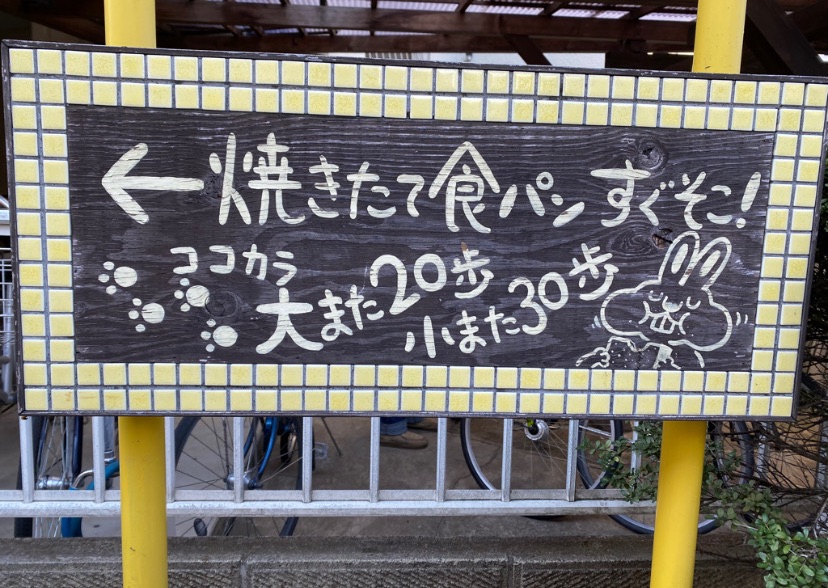 ←焼きたて食パン すぐそこ!
ココカラ
大また20歩
小また30歩